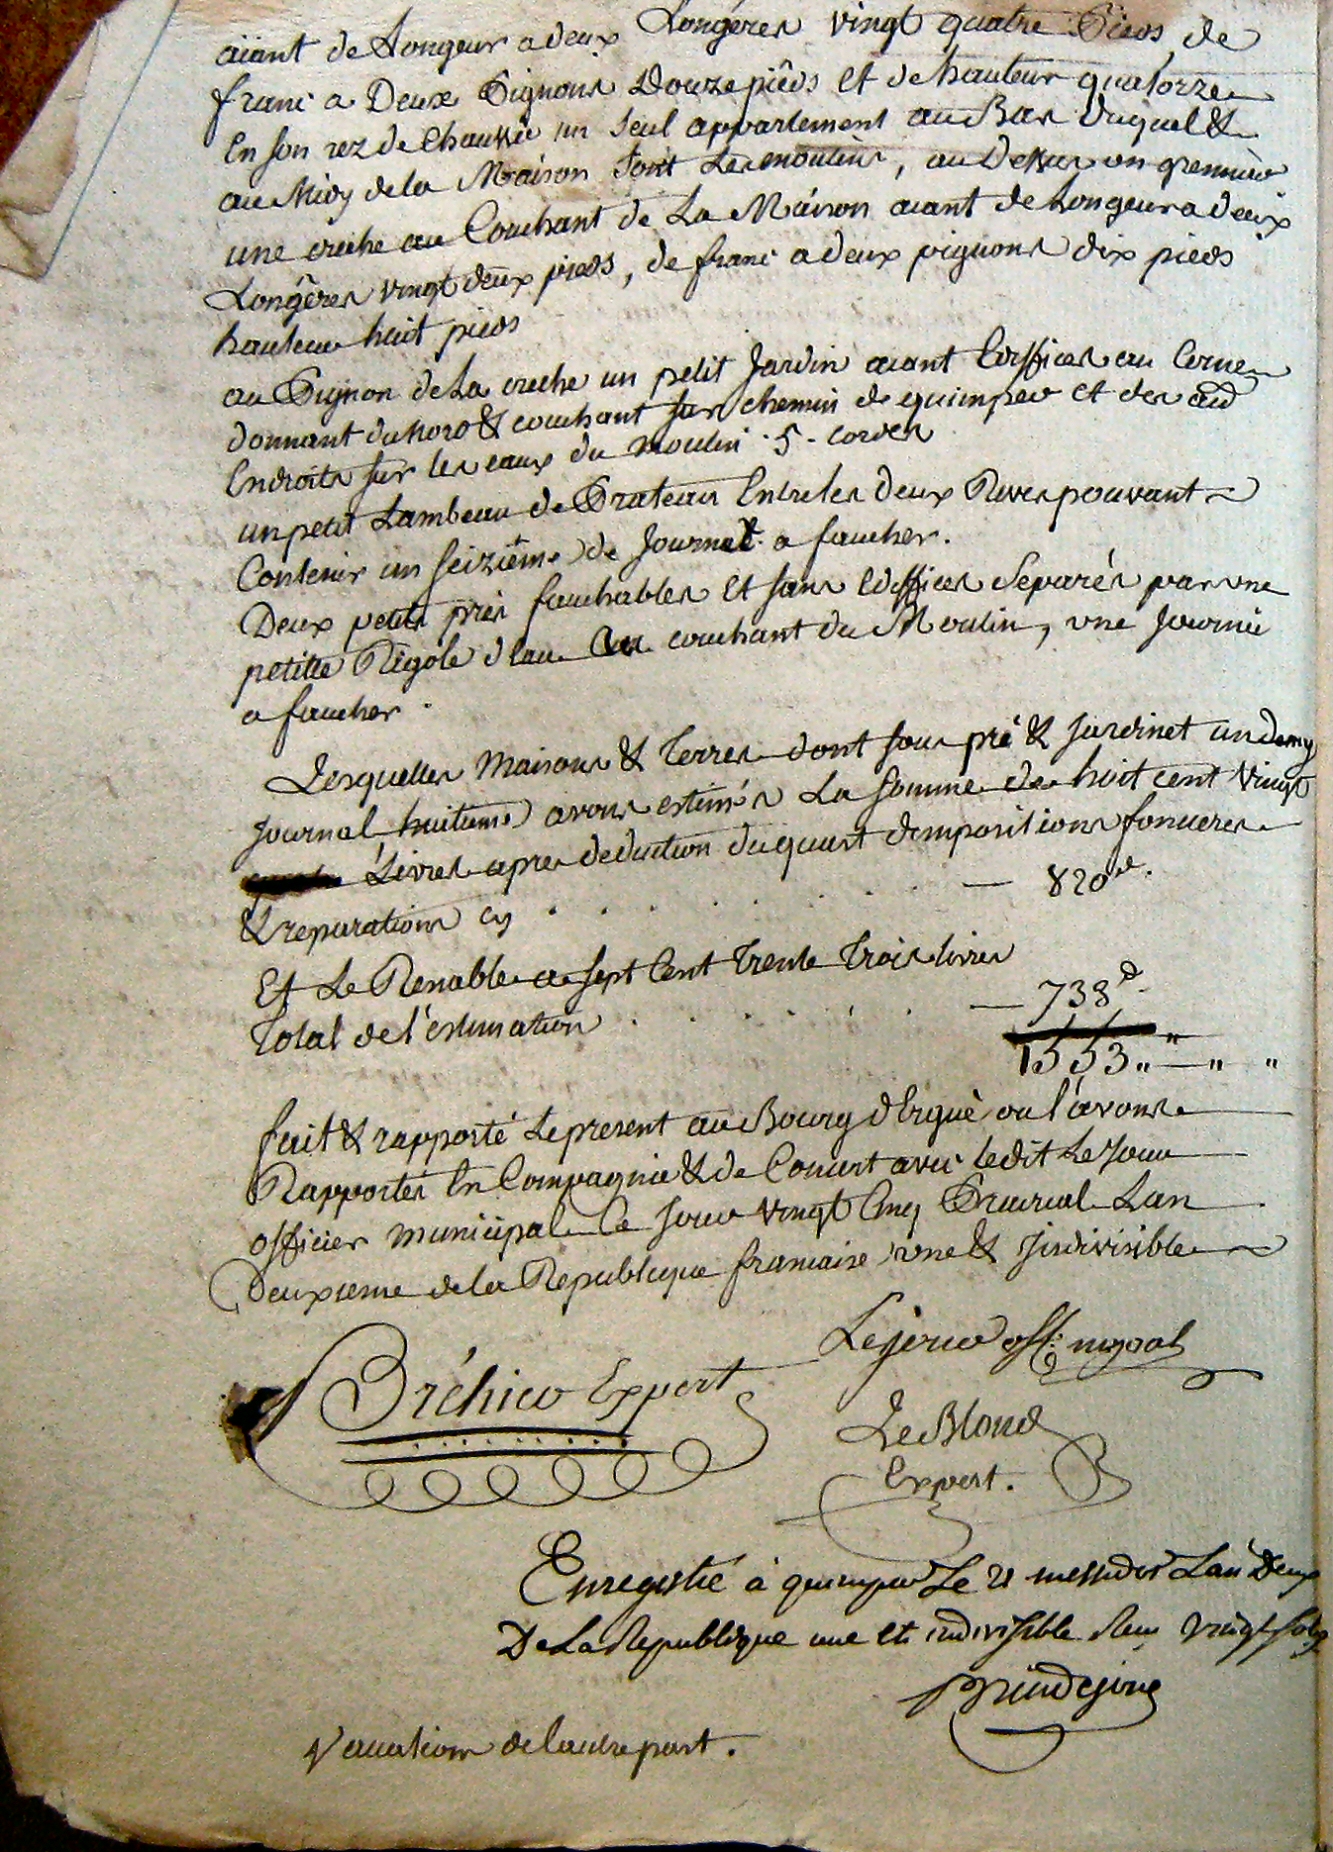 aiant de Longeur a deux Longéres vingt quatre Pieds de
franc a Deux Pignons Douze piéds et de hauteur quatorze
En son rez de Chaussée un seul appartement au Bas duquel &
au Midy de la Maison sont Les moulins, au Dessus un grennier
une creche au Couchant de La Maison aiant de Longeur a deux
Longéres vingt deux pieds, de franc a deux pignons dix pieds
hauteur huit pieds
au Pignon de La creche un petit Jardin aiant Edifficer au Cerne
donnant du nord & couchant sur chemin de quimper et des aud
Endroits sur les eaux du moulin .5. cordes
un petit Lambeau de Prateau Entre les deux Rives pouvant
Contenir un seiziéme de Journal a faucher.
Deux petits prés fauchables et sans Ediffices Separés par une
petitte Rigole d'eau au couchant du Moulin, une Journée
a faucher.
Lesquelles Maisons & Terres dont sous pré & Jardinet un demy
Journal huitieme avons estimés La somme de huit cent Vingt
Livres apres deduction du quart d'impositions foncieres
& reparations cy . . . . . . . — 820ᵗᵗ.
Et Le Renable a sept Cent Trente Trois livres
— 733ᵗᵗ
Total de l'estimation . . . . . .
1553 " — " "
fait & rapporté Le present au Bourg d'Ergué ou l'avons
Rapportés En Compagnie & de Concert avec ledit Le Jour
officier municipal Ce Jour Vingt Cinq Prairial Lan
Deuxieme de la Republique francaise une & Jndivisible
Bréhier Expert
Le Blond
Expert.
Enregistré à quimper Le 21 messidor L'an Deux
De La Republique une et indivisible Reçu Vingt sols
Vacations de l'autre part.